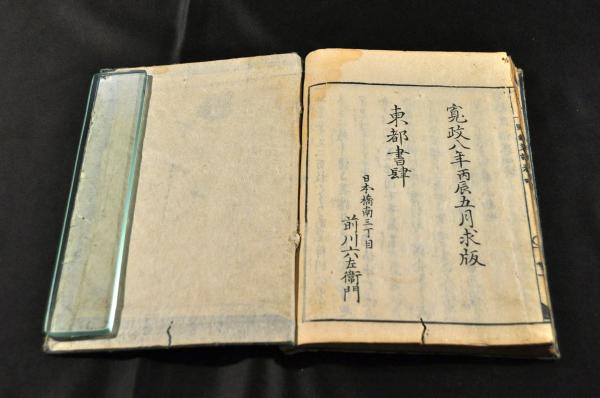 寛政八年丙辰五月求版
東都書肆
日本橋南三丁目
前川六左衛門